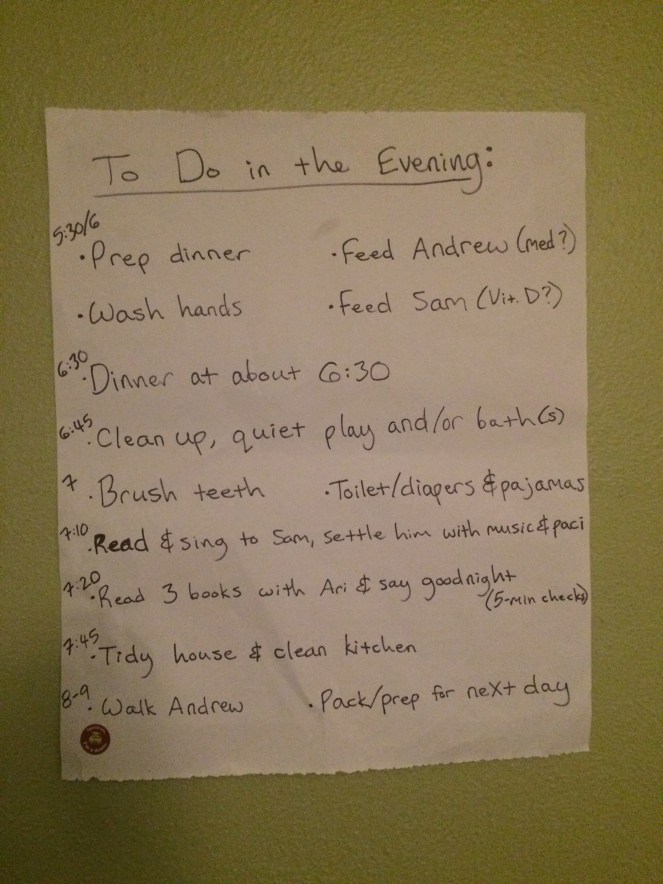 To Do in the Evening:
5:30/6
• Prep dinner • Feed Andrew (med?)
• Wash hands • Feed Sam (Vit. D?)
6:30 • Dinner at about 6:30
6:45 • Clean up, quiet play and/or bath(s)
7 • Brush teeth • Toilet/diapers & pajamas
7:10 • Read & sing to Sam, settle him with music & paci
7:20 • Read 3 books with Ari & say goodnight
(5-min checks)
7:45 • Tidy house & clean kitchen
8-9 • Walk Andrew • Pack/prep for next day